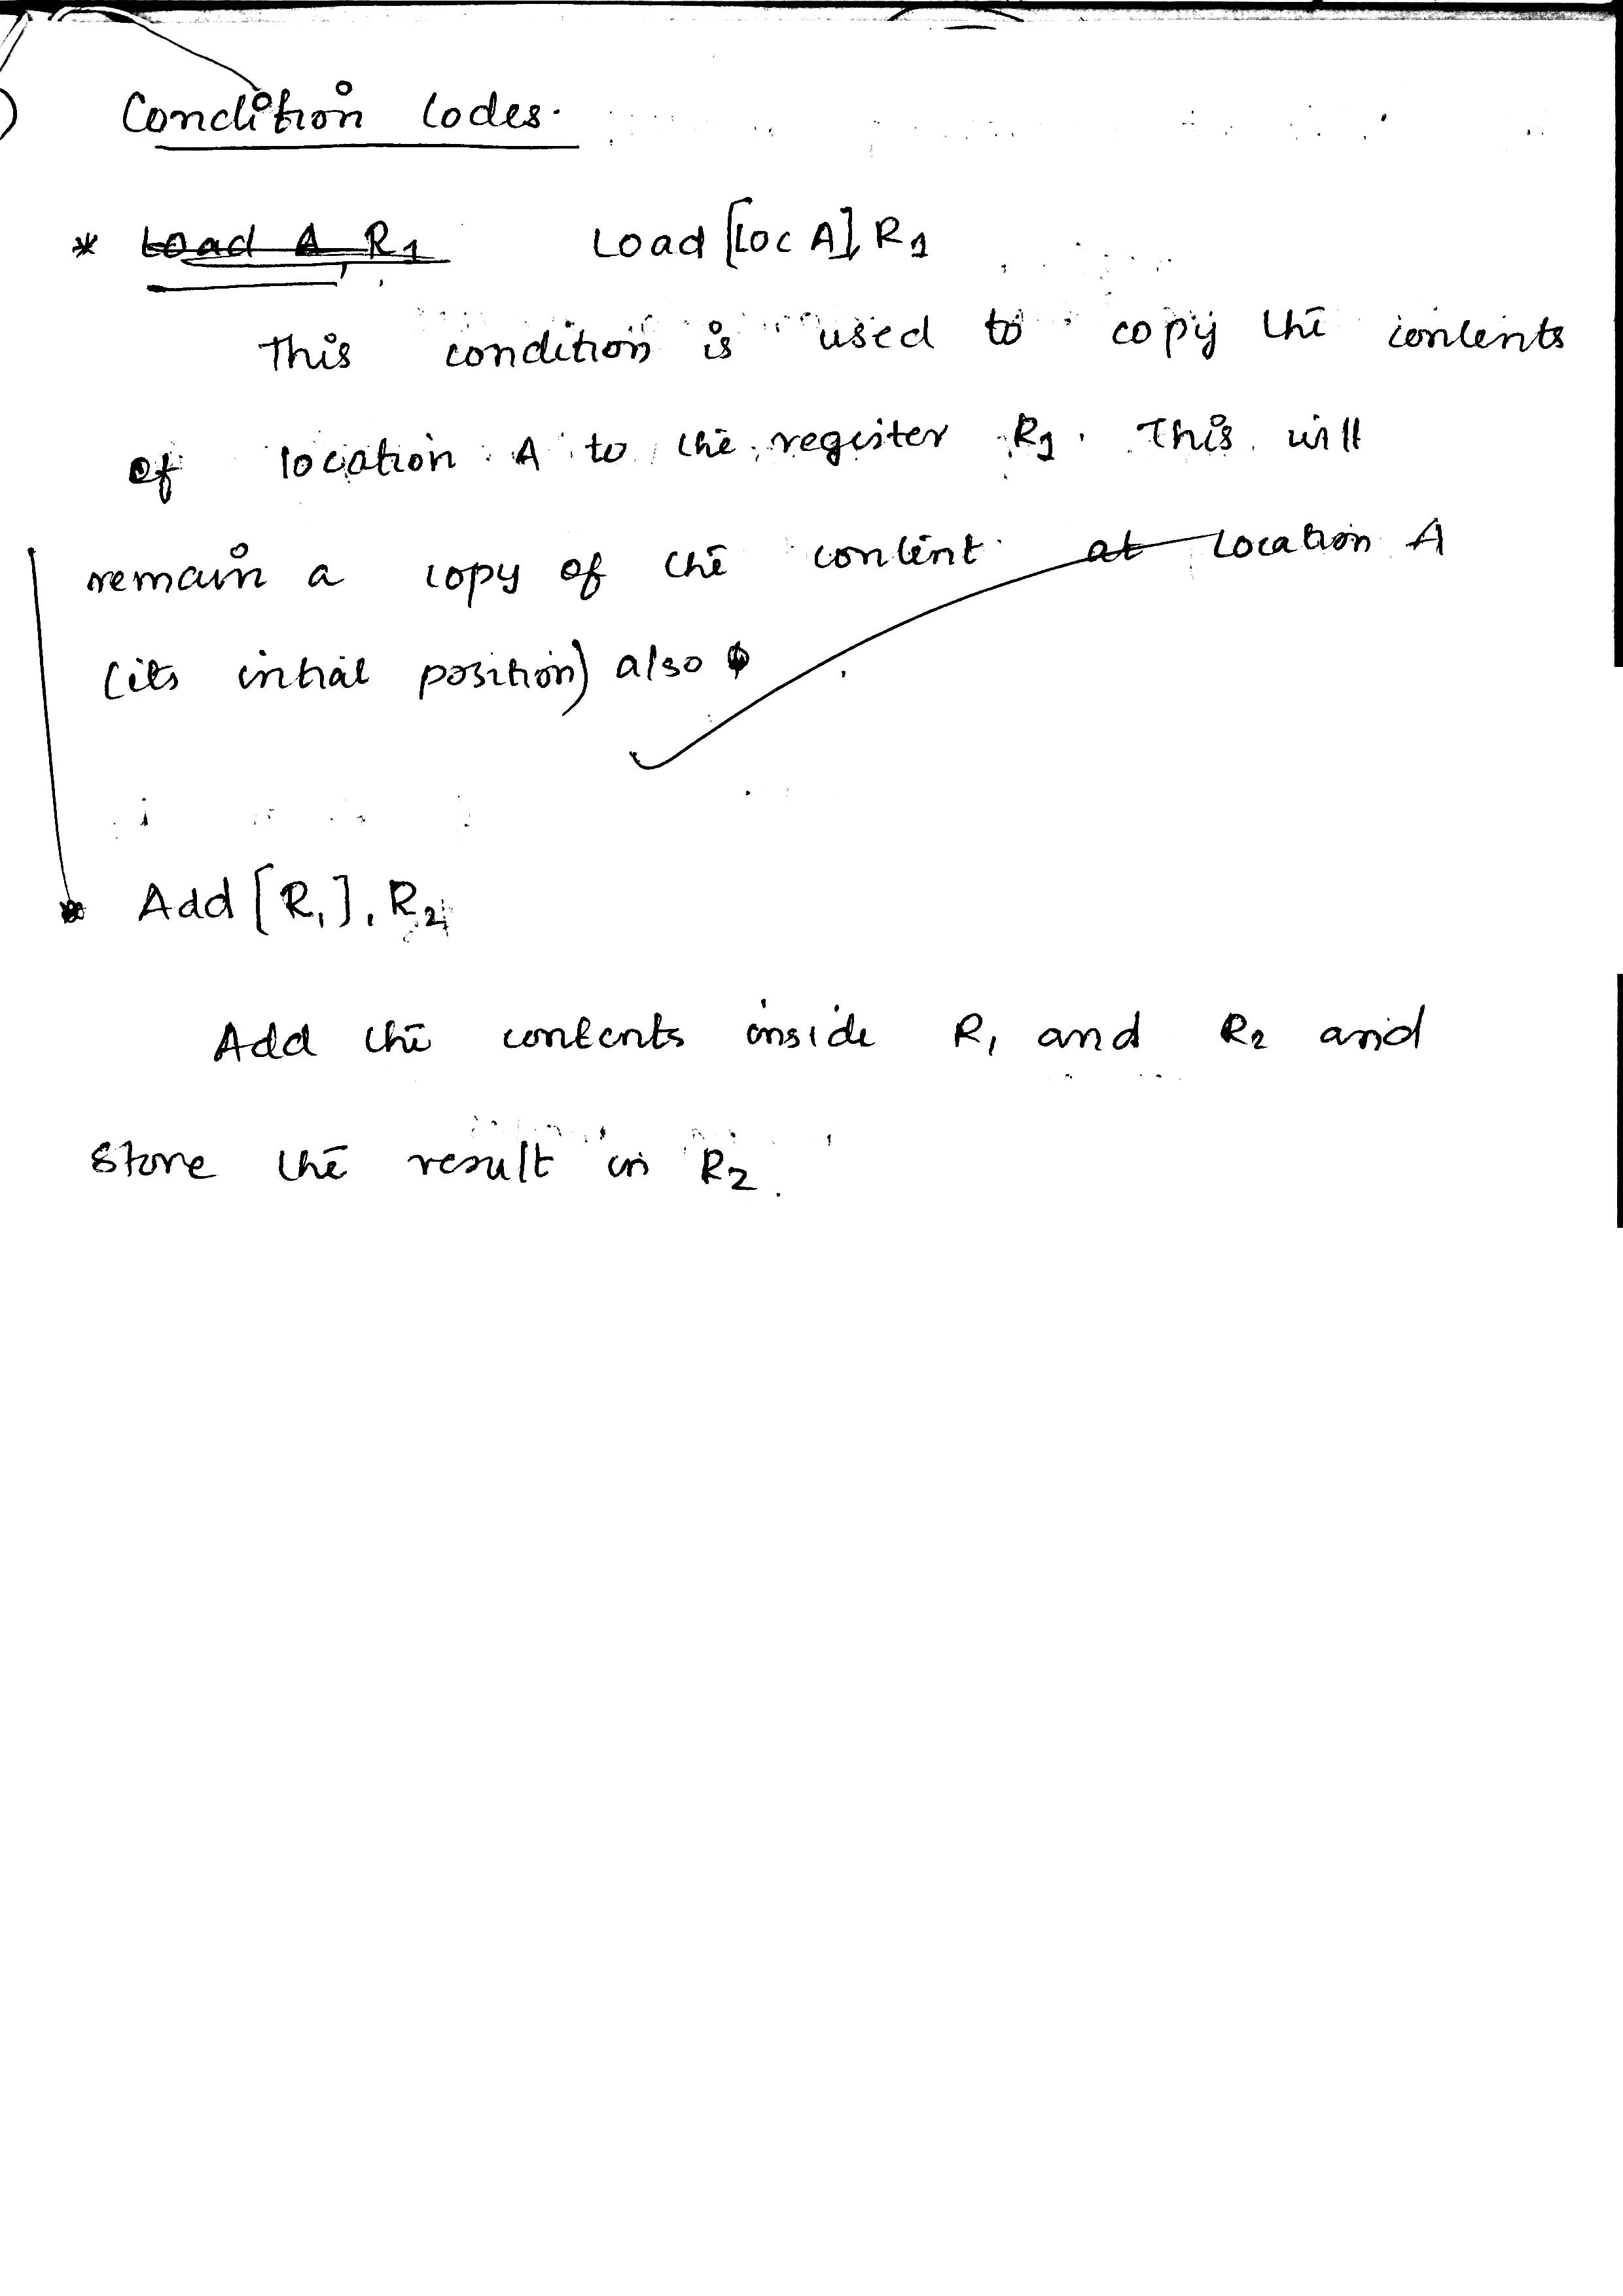 Condition Codes.
* Load A, R1 Load [Loc A], R1
This condition is used to copy the contents
of location A to the register R1. This will
remain a copy of the content at location A
(its initial position) also
* Add [R1], R2
Add the contents inside R1 and R2 and
store the result in R2.